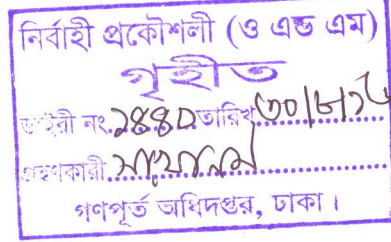 নির্বাহী প্রকৌশলী (ও এন্ড এম)
গৃহীত
ডাইরী নং.১৪৪০তারিখ৩০/৮/১৬
গ্রহণকারী
গণপূর্ত অধিদপ্তর, ঢাকা।